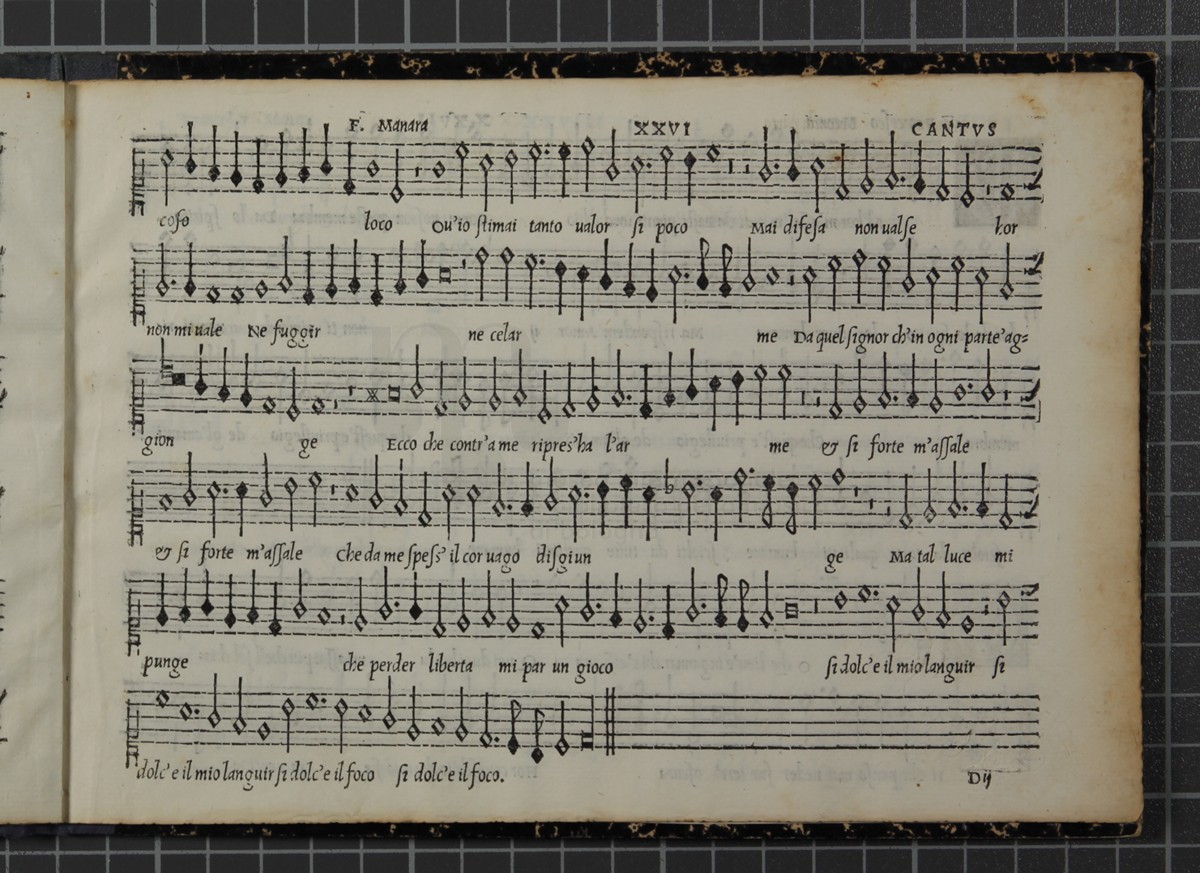 F. Manara XXVI CANTVS
coso loco Ou'io stimai tanto ualor si poco Mai difesa non ualse hor
non mi uale Ne fuggir ne celar me Da quel signor ch'in ogni parte'ag=
gion ge Ecco che contr'a me ripres'ha l'ar me & si forte m'assale
& si forte m'assale Che da me spess' il cor uago disgiun ge Ma tal luce mi
punge che perder liberta mi par un gioco si dolc'e il mio languir si
dolc'e il mio languir si dolc'e il foco si dolc'e il foco.
D ij